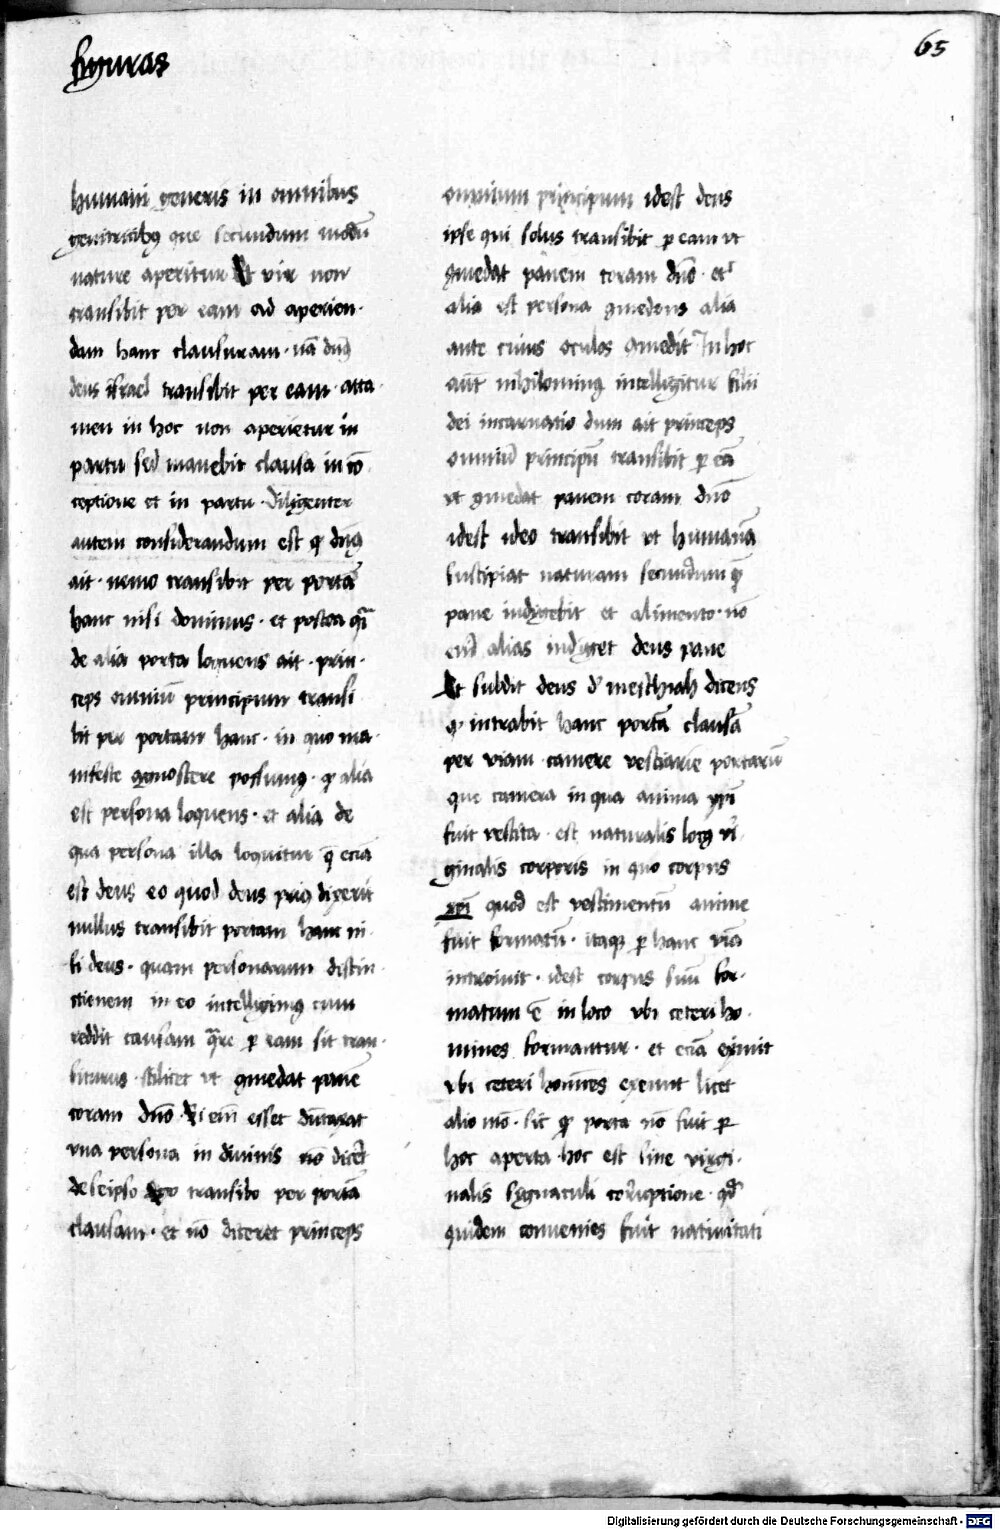 figuras
65
humani generis in omnibus
genitricibꝫ que secundum modū
nature aperitur Et vir non
transibit per eam ad aperien·
dam hanc clausuram · nā dnꝫ
deus israel transibit per eam · atta·
men in hoc non aperietur in
partu sed manebit clausa in cō
ceptione et in partu · diligenter
autem considerandum est ꝙ dnꝫ
ait · nemo transibit per portā
hanc nisi dominus · et postea qͣi
de alia porta loquens ait · prin·
ceps omniū principum transi
bit per portam hanc · in quo ma·
nifeste ꝯgnoscere possumꝫ · ꝙ alia
est persona loquens · et alia de
qua persona illa loquitur q̄ eciā
est deus eo quod deus priꝫ dixerit
nullus transibit portam hanc ni·
si deus · quam personarum distin·
ctionem in eo intelligimꝫ cum
reddit causam qͣre ꝑ eam sit tran·
siturus · scilicet vt ꝯmedat panē
coram dn̄o · Si em̄ esset dūtaxat
vna persona in diuinis nō dicet
de seipso ego transibo per portā
clausam · et nō diceret princeps
omnium principum idest deus
ipse qui solus transibit ꝑ eam vt
ꝯmedat panem coram dn̄o · et
alia est persona ꝯmedens alia
ante cuius oculos ꝯmedit In hoc
aūt nihilominꝫ intelligitur filii
dei incarnatio dum ait princeps
omniū principū transibit ꝑ eā
vt ꝯmedat panem coram dn̄o
idest ideo transibit vt humanā
suscipiat naturam secundum q̄
pane indigebit et alimento · nō
eni alias indiget deus pane
Et subdit deus d' meschiah dicens
ꝙ intrabit hanc portā clausā
per viam camere vestiarie portarū
que camera in qua anima xp̄i
fuit vestita · est naturalis locꝫ vi·
ginalis corporis in quo corpus
xp̄i quod est vestimentū anime
fuit formatū · itaqꝫ ꝑ hanc viā
introiuit · idest corpus suū for·
matum ē in loco vbi ceteri ho·
mines formantur · et eciā exiuit
vbi ceteri homīes exeunt licet
alio mō · sic ꝙ porta nō fuit ꝑ
hoc aperta hoc est sine virgi·
nalis signaculi corrupcione · qd̄
quidem conuenies fuit natiuitati
Digitalisierung gefördert durch die Deutsche Forschungsgemeinschaft - DFG